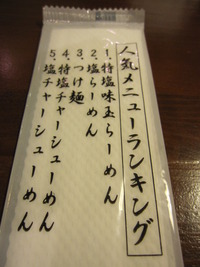 人気メニューランキング
1、特塩味玉らーめん
2、塩らーめん
3、つけ麺
4、特塩チャーシューめん
5、塩チャーシューめん